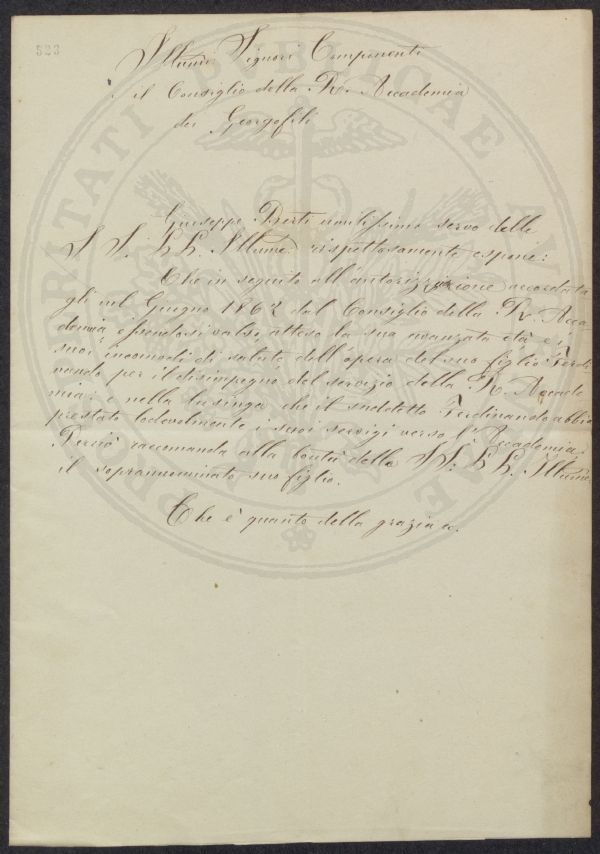 523
Illumi Signori Componenti
il Consiglio della R. Accademia
dei Georgofili
Giuseppe Berti umilissimo servo delle
S. S. LL. Illume rispettosamente espone:
Che in seguito all'autorizzazione accordata
gli nel Giugno 1862 dal Consiglio della R. Acca
demia, essendosi valso, atteso la sua avanzata età e i
suoi incomodi di salute, dell'opera del suo figlio Ferdi
nando per il disimpegno del servizio della R. Accade
mia; e nella lusinga che il suddetto Ferdinando abbia
prestato lodevolmente i suoi servigi verso l'Accademia.
Perciò raccomanda alla bontà delle SS: LL. Illume
il soprannominato suo figlio.
Che è quanto della grazia ec.
PROSPERITATI PUBLICAE AUGENDAE